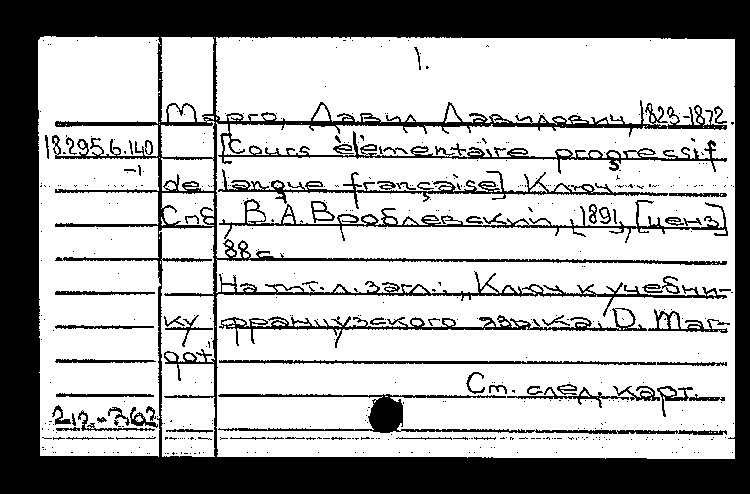 1.
Марго, Давид Давидович, 1823-1872.
18.295.6.140 [Cours élémentaire progressif
-1 de langue française]. Ключ
Спб, В.А. Вроблевский, [1891], [ценз]
88 с.
На тит. л. загл.: „Ключ к учебни-
ку французского языка. D. Mar-
got"
См. след. карт.
212.-762